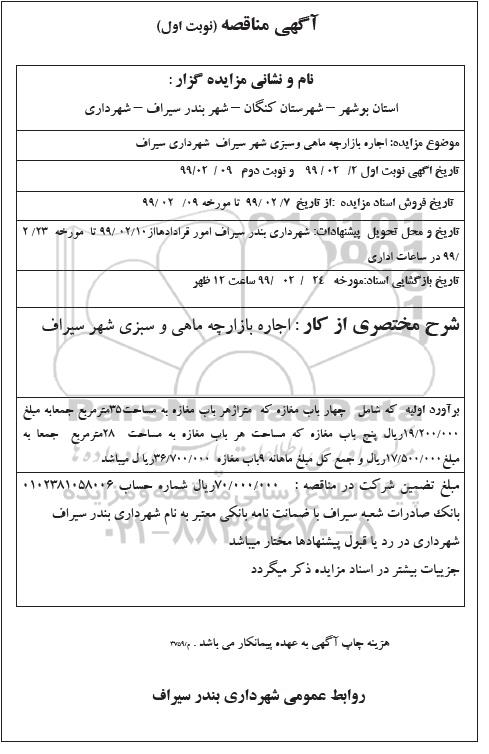 آگهی مناقصه (نوبت اول)
نام و نشانی مزایده گزار :
استان بوشهر – شهرستان کنگان – شهر بندر سیراف – شهرداری
موضوع مزایده: اجاره بازارچه ماهی وسبزی شهر سیراف شهرداری سیراف
تاریخ اگهی نوبت اول ۲/ ۰۲ / ۹۹ و نوبت دوم ۰۹ / ۹۹/۰۲
تاریخ فروش اسناد مزایده :از تاریخ ۷/ ۰۲ /۹۹ تا مورخه ۰۹/ ۰۲ / ۹۹
تاریخ و محل تحویل پیشنهادات: شهرداری بندر سیراف امور قرادادهااز۹۹/۰۲/۱۰ تا مورخه ۲۳/ ۲
/۹۹ در ساعات اداری
تاریخ بازگشایی اسناد:مورخه ۲٤ / ۰۲ / ۹۹ ساعت ۱۲ ظهر
شرح مختصری از کار : اجاره بازارچه ماهی و سبزی شهر سیراف
برآورد اولیه که شامل چهار باب مغازه که متراژهر باب مغازه به مساحت۳۵مترمربع جمعابه مبلغ
۱۹/۲۰۰/۰۰۰ریال پنج باب مغازه که مساحت هر باب مغازه به مساحت ۲۸مترمربع جمعا به
مبلغ۱۷/۵۰۰/۰۰۰ریال و جمع کل مبلغ ماهانه ۹باب مغازه ۳۶/۷۰۰/۰۰۰ریا ل میباشد
مبلغ تضمین شرکت در مناقصه : ۷۰/۰۰۰/۰۰۰ریال شماره حساب ۰۱۰۲۳۸۱۰۵۸۰۰۶
بانک صادرات شعبه سیراف با ضمانت نامه بانکی معتبر به نام شهرداری بندر سیراف
شهرداری در رد یا قبول پیشنهادها مختار میباشد
جزییات بیشتر در اسناد مزایده ذکر میگردد
هزینه چاپ آگهی به عهده پیمانکار می باشد . م/۳۷۵۹
روابط عمومی شهرداری بندر سیراف
ParsNamadData
پایگاه اطلاع رسانی مناقصه و مزایده
۰۲۱-۸۸۳۴۹۶۷۰-۵